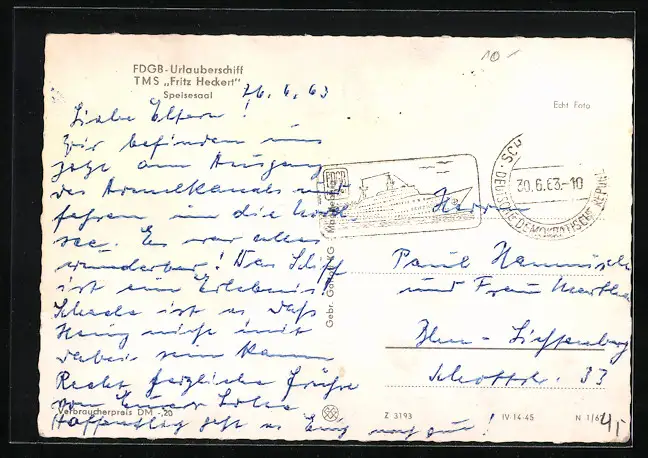 FDGB-Urlauberschiff
TMS „Fritz Heckert"
Speisesaal
26. 6. 63
Liebe Eltern!
Wir befinden uns
jetzt am Ausgang
des Ärmelkanals und
fahren in die Nord-
see. Es war alles
wunderbar! Das Schiff
ist ein Erlebnis!
Schade ist es daß
nicht mit
dabei sein kann
Recht herzliche Grüße
von Eurer
Hoffentlich geht es Euch noch gut!
Verbraucherpreis DM -,20
Gebr. Garloff KG
10-
Echt Foto
FDGB
SCH
30.6.63.-10
DEUTSCHE DEMOKRATISCHE REPUBL
Herrn
Paul
und Frau Martha
Bln - Lichtenberg
33
Z 3193
IV-14-45
N 1/6
4,-